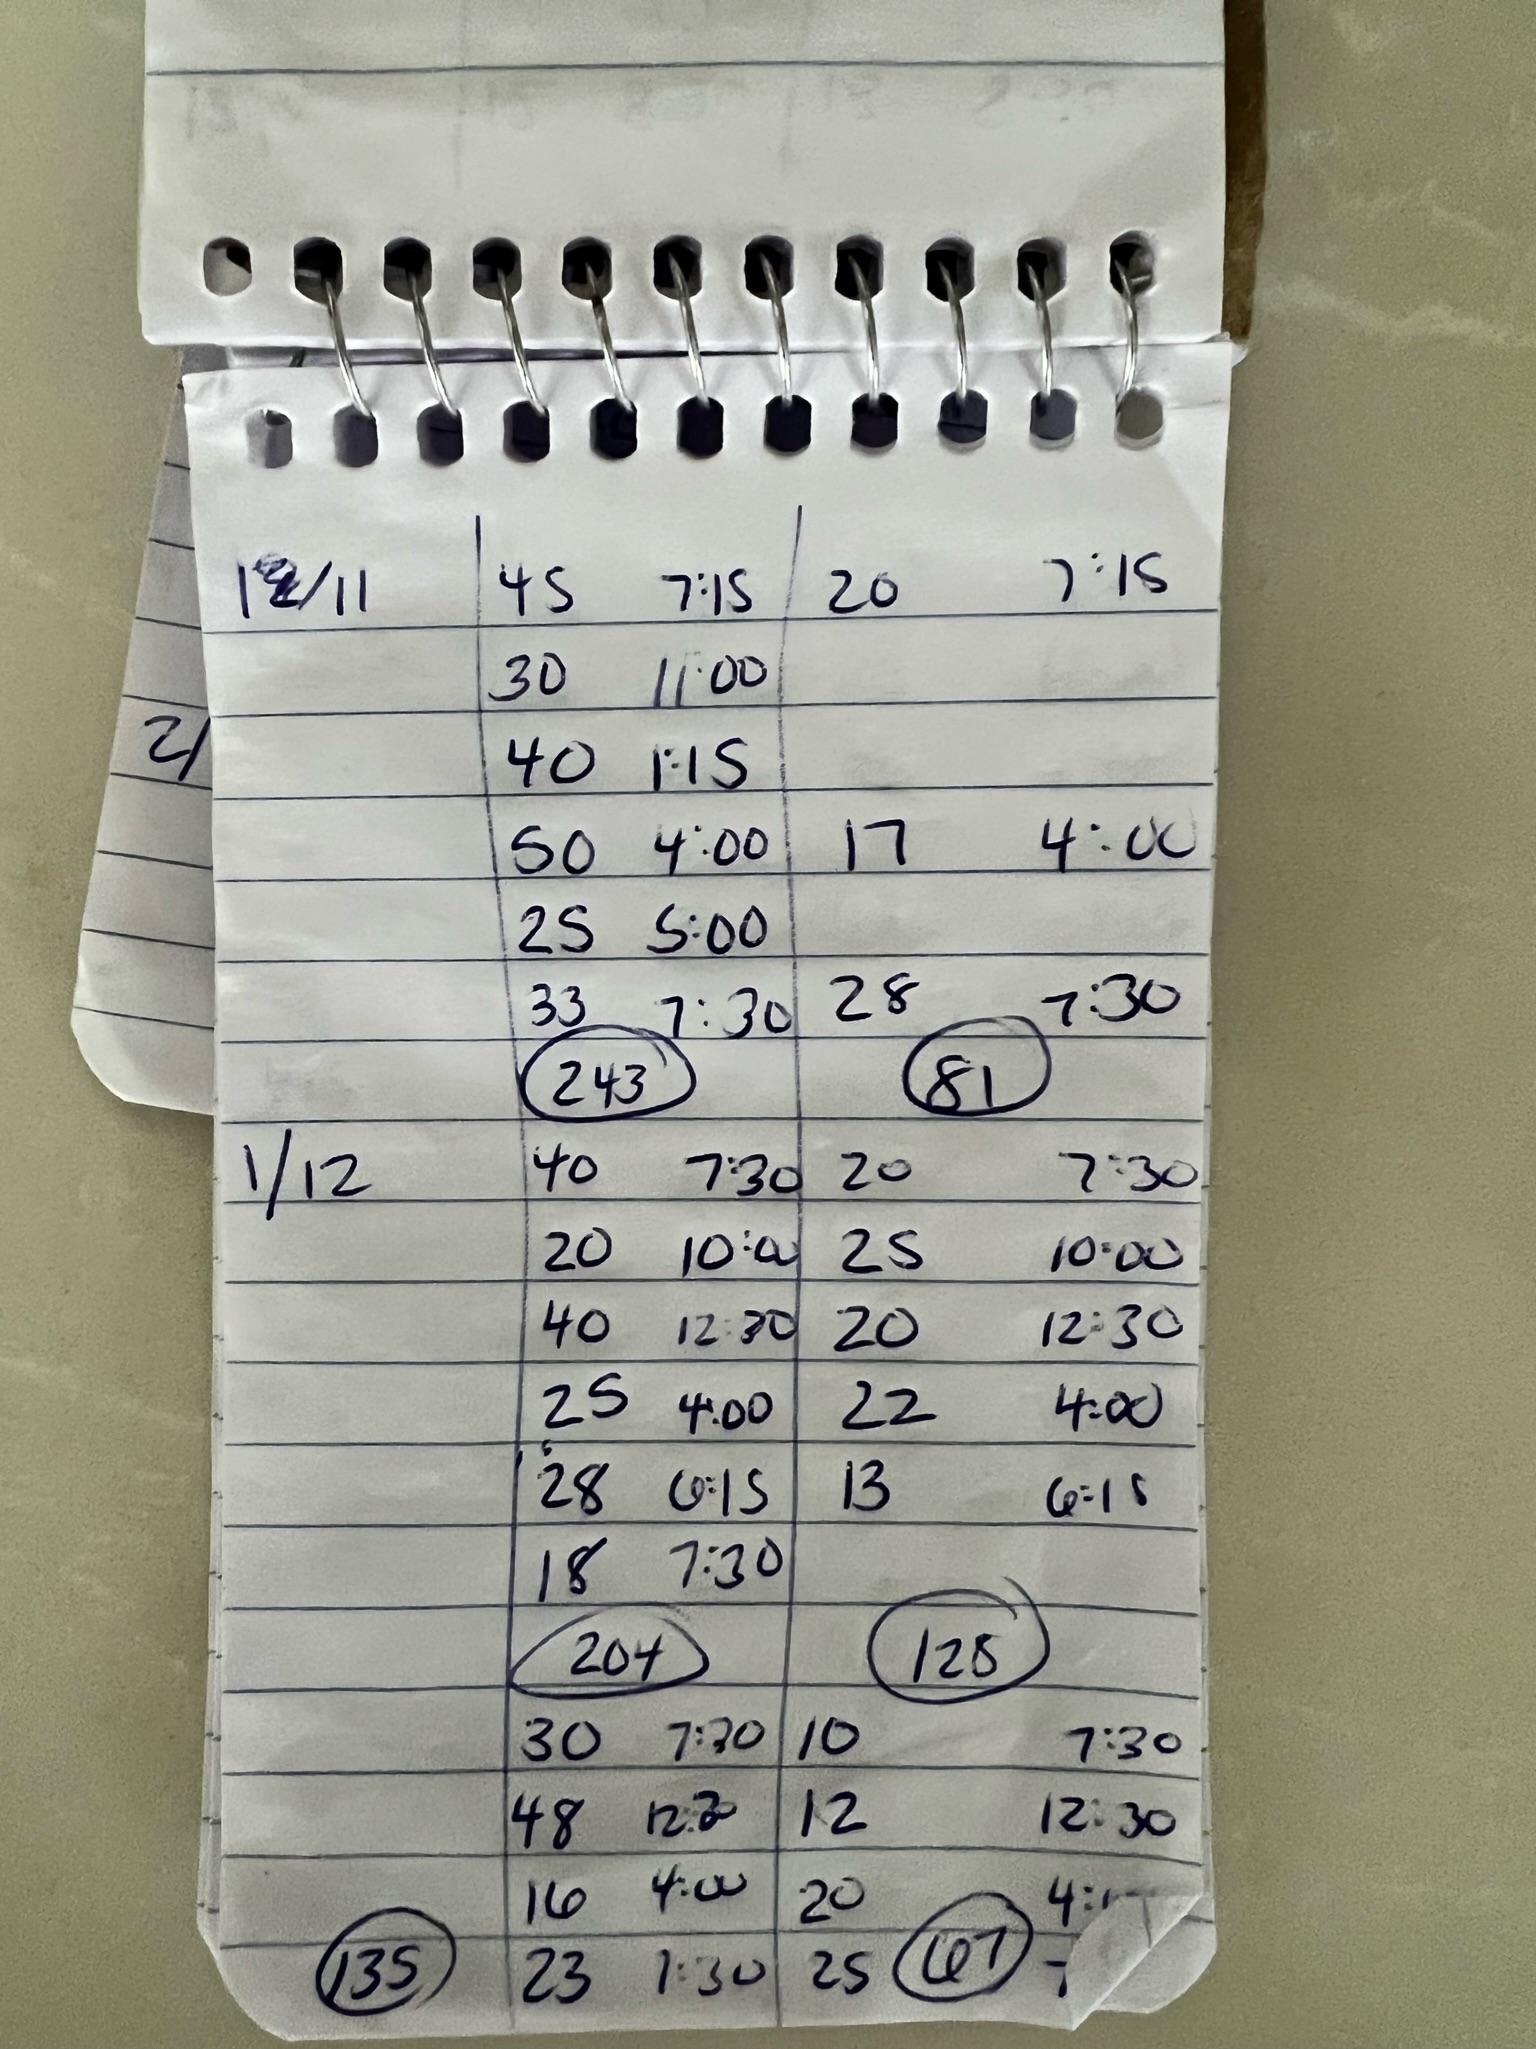 1/11 45 7:15 20 7:15
30 11:00
40 1:15
2/
50 4:00 17 4:00
25 5:00
33 7:30 28 7:30
243 81
1/12 40 7:30 20 7:30
20 10:00 25 10:00
40 12:30 20 12:30
25 4:00 22 4:00
28 6:15 13 6:15
18 7:30
204 128
30 7:30 10 7:30
48 12:30 12 12:30
16 4:00 20
135 23 7:30 25 67